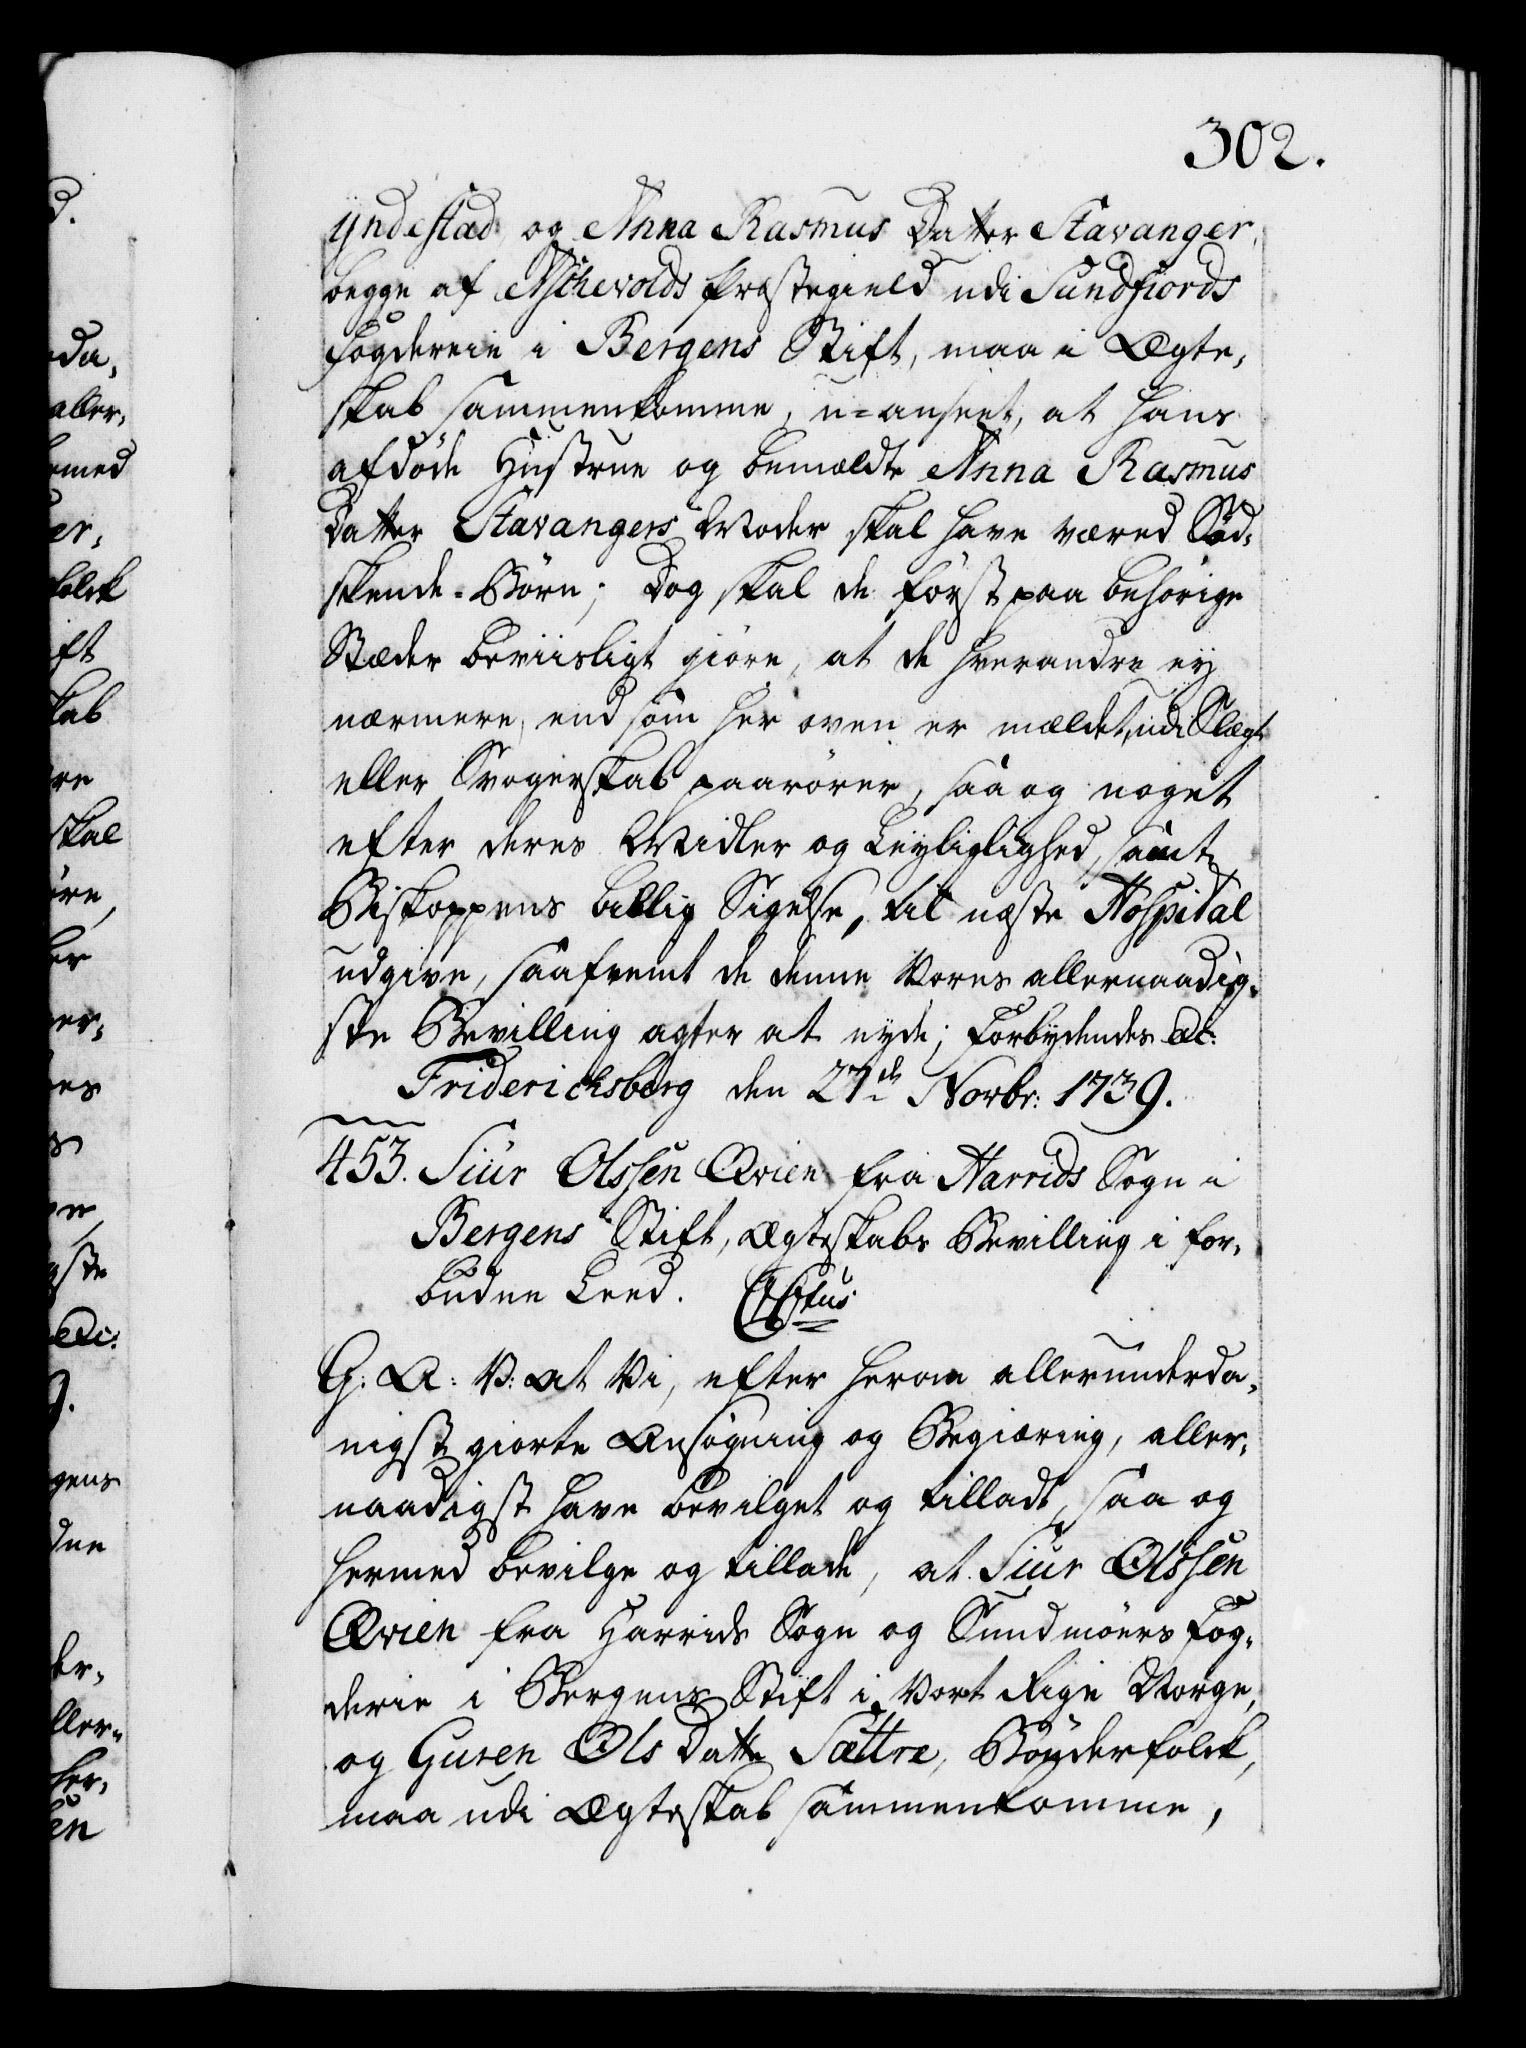 302.
Yndestad og Anna Rasmus Datter Stavanger,
begge af Aschevolds Præstegield udi Sundfiords
Fogderie i Bergens Stift, maa i Ægte,
skab sammenkomme, u-anseet, at hans
afdöde Hustrue og bemældte Anna Rasmus
Datter Stavangers Moder skal have været Söd,
skende-Börn; Dog skal de först paa behörige
Stæder beviisligt giöre, at de hverandre ey
nærmere, end som her oven er mældet, udi Slægt
eller Svogerskab paarörer, saa og noget
efter deres Midler og Leyliglighed, samt
Biskoppens billig Sigelse, til næste Hospital
udgive, saafremt de denne Vores allernaadig,
ste Bevilling agter at nyde; Forbydendes etc:
Fridericksberg den 27de Novbr: 1739.
453. Siur Olssen Qvien fra Harrids Sogn i
Bergens Stift, Ægteskabs Bevilling i for,
budne Leed. C6tus
G: A: V: at Vi, efter herom allerunderda,
nigst giorte Ansögning og Begiæring, aller,
naadigst have bevilget og tilladt, saa og
hermed bevilge og tillade, at Siur Olssen
Qvien fra Harrids Sogn og Sundmöers Fog,
derie i Bergens Stift i Vort Rige Norge,
og Guren Ols Datter Sættre, Bönderfolck,
maa udi Ægteskab sammenkomme,
d.
da,
aller,
med
er,
folck
ift
kab
re
skal
öre,
er
er,
es
gste
etc:
9.
gens
dne
er,
ller,
her,
en